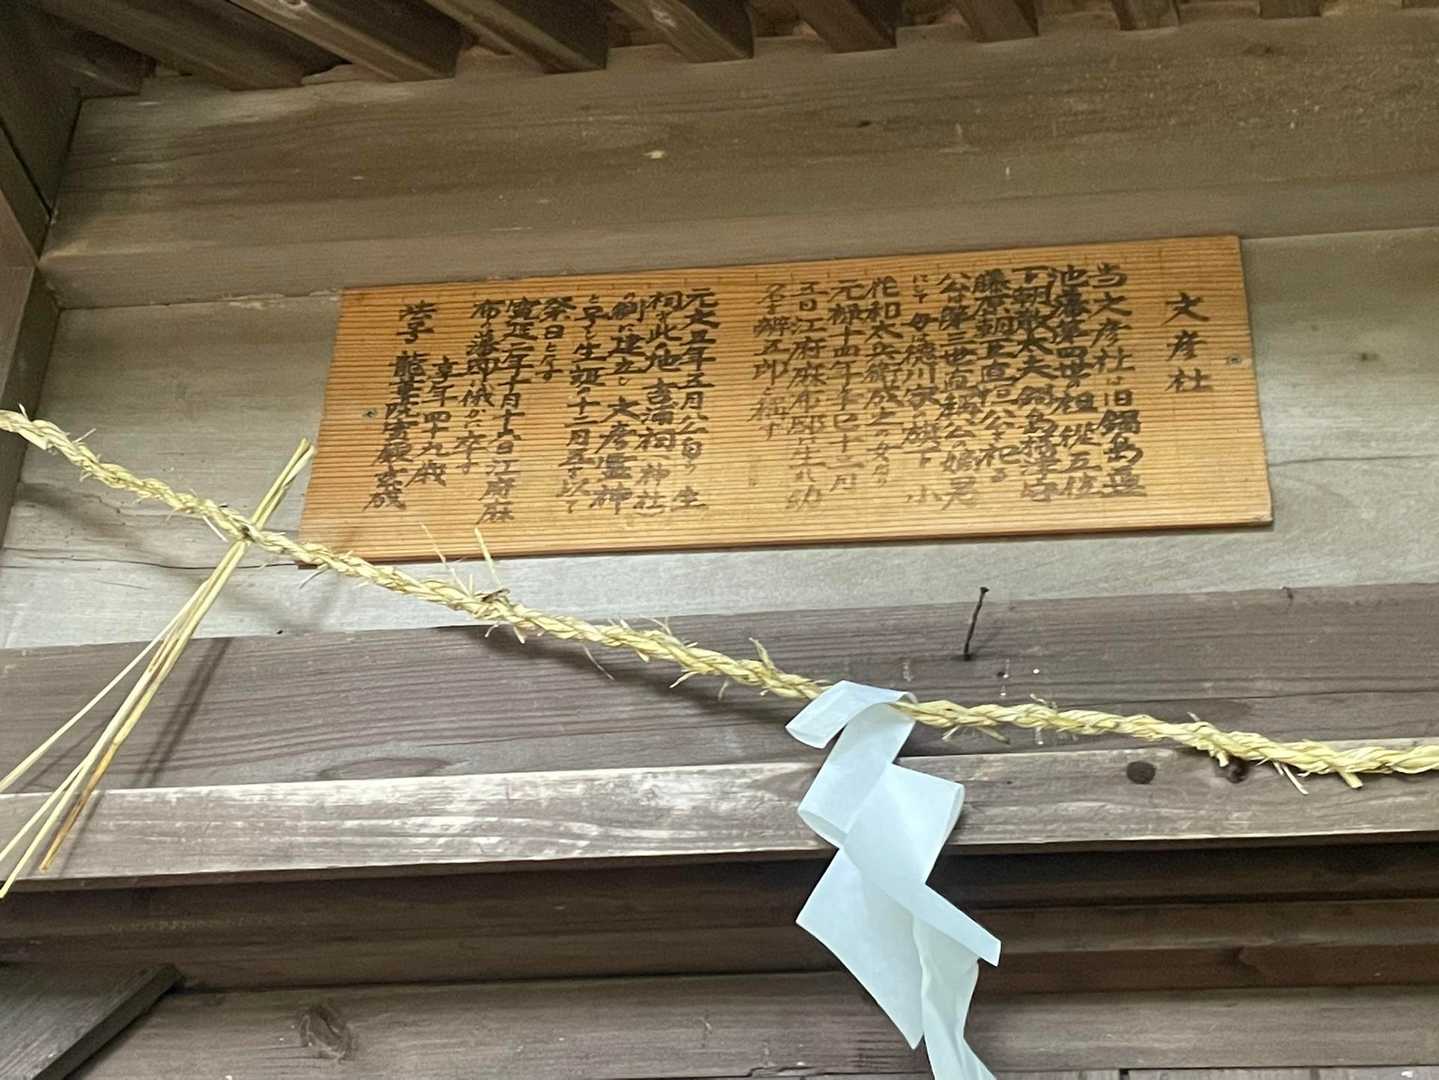 文彦社
当文彦社は旧鍋島蓮
池藩第四世の祖従五位
下朝散大夫鍋島摂津守
藤原朝臣直恒公を祀る
公は第三世直稱公の始君
にて母は徳川家の旗下小
花和太兵衛成之の女なり
元禄十四年辛巳十二月
五日江府麻布邸に生れ幼
名を辨五郎と稱す
元文五年五月八日の生
祠を此の地吉浦祠神社
の側に建立し大彦霊神
と号し生誕の十二月五日を以て
祭日となす
寛延二年十月十六日江府麻
布の藩邸に俄かに卒す
享年四十九歳
法号 龍華院実嶽玄磯